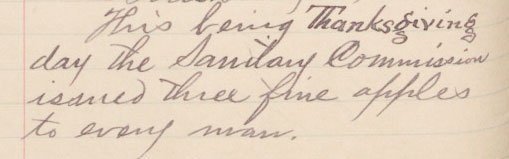 This being Thanksgiving
day the Sanitary Commission
issued three fine apples
to every man.